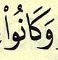 وَكَانُوا۟